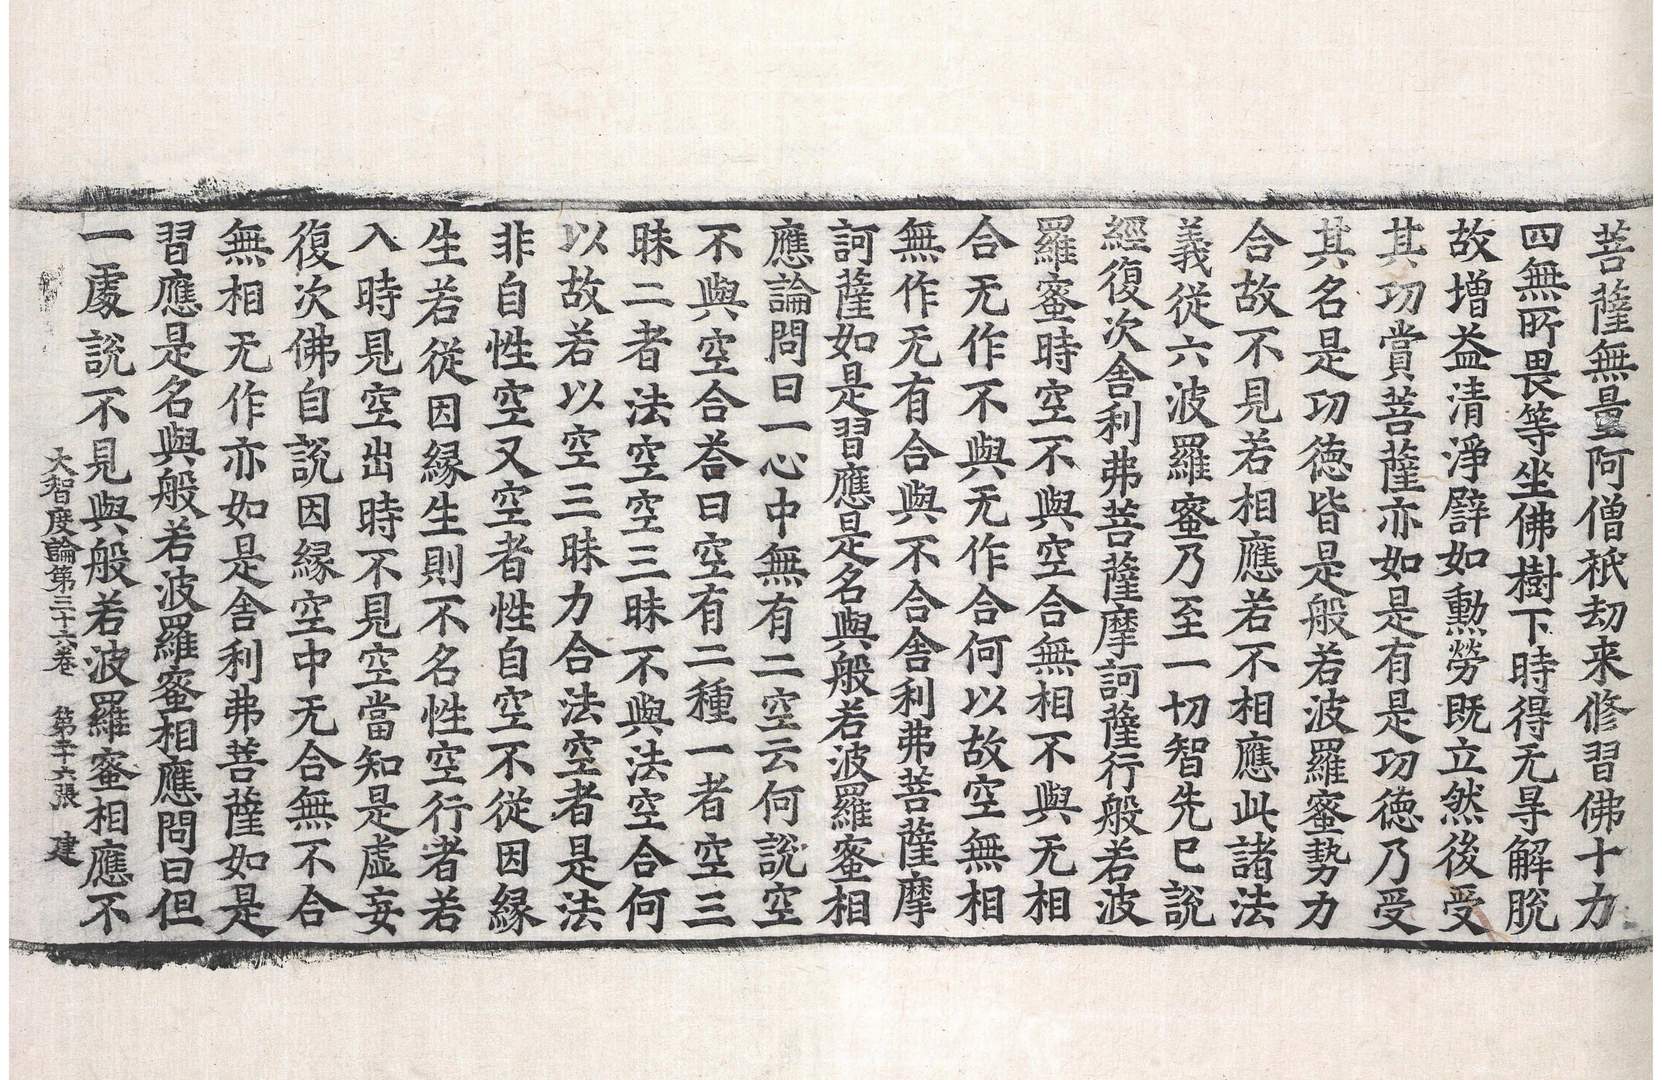 菩薩無量阿僧祇劫来修習佛十力
四無所畏等坐佛樹下時得无㝵解脫
故增益清淨譬如勳勞既立然後受
其功賞菩薩亦如是有是功德乃受
其名是功德皆是般若波羅蜜勢力
合故不見若相應若不相應此諸法
義從六波羅蜜乃至一切智先已說
經復次舍利弗菩薩摩訶薩行般若波
羅蜜時空不與空合無相不與无相
合无作不與无作合何以故空無相
無作无有合與不合舍利弗菩薩摩
訶薩如是習應是名與般若波羅蜜相
應論問曰一心中無有二空云何說空
不與空合荅曰空有二種一者空三
昧二者法空空三昧不與法空合何
以故若以空三昧力合法空者是法
非自性空又空者性自空不從因緣
生若從因緣生則不名性空行者若
入時見空出時不見空當知是虛妄
復次佛自說因緣空中无合無不合
無相无作亦如是舍利弗菩薩如是
習應是名與般若波羅蜜相應問曰但
一處說不見與般若波羅蜜相應不
大智度論第三十六卷 第二十六張 建